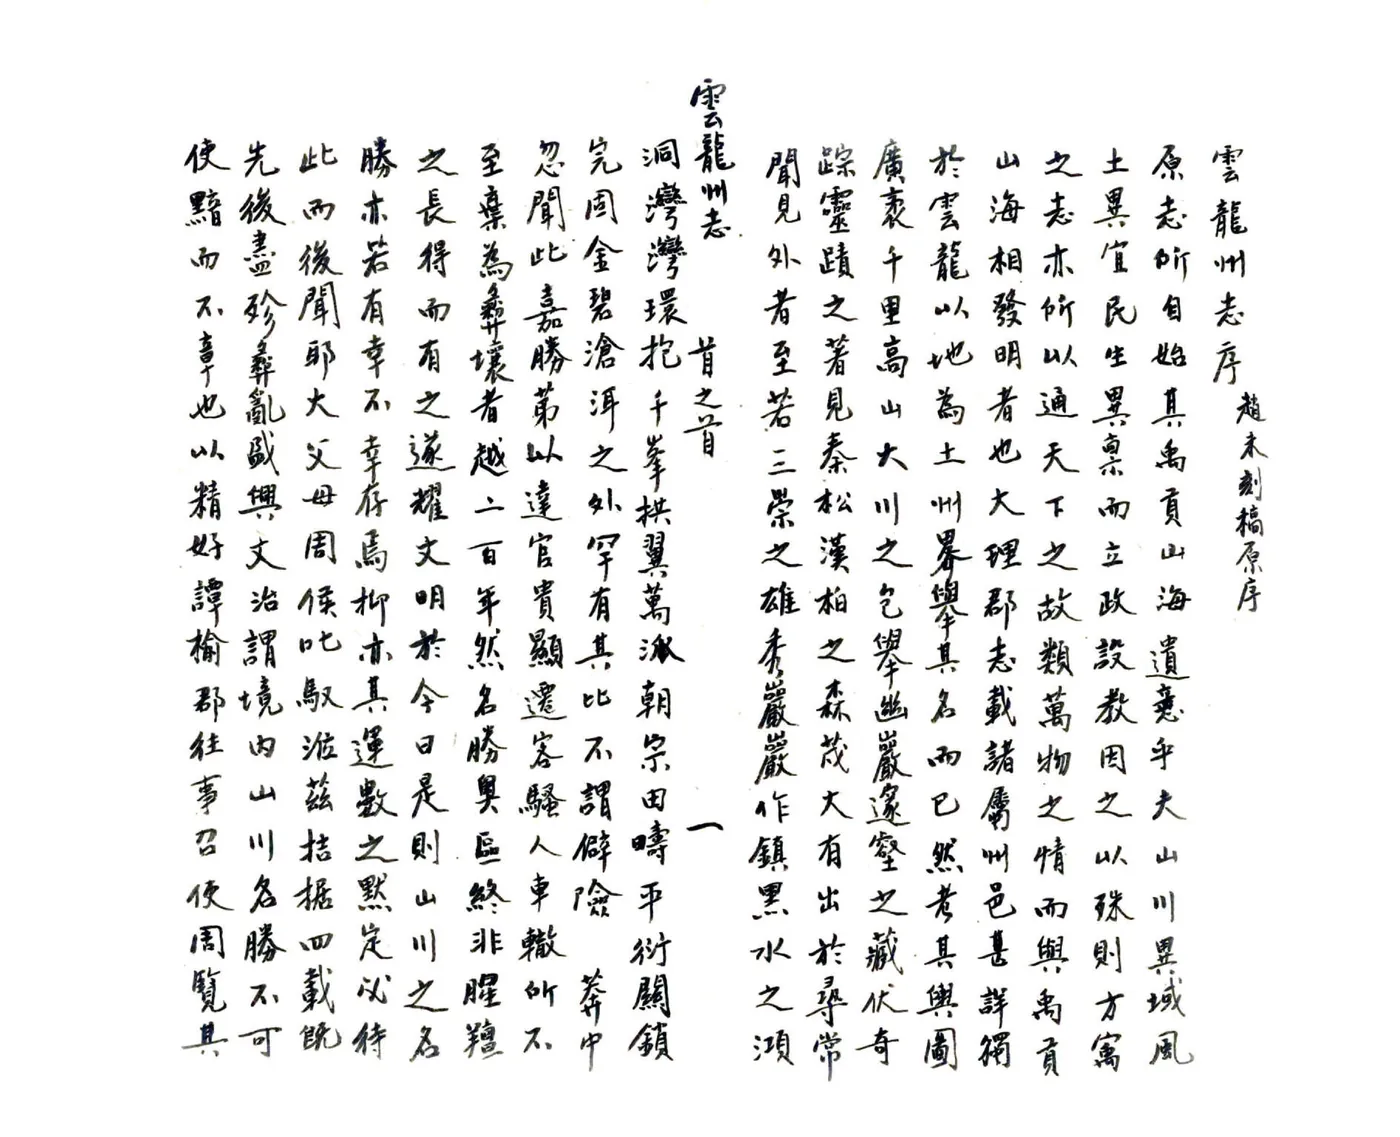 雲龍州志序
趙未刻稿原序
原志所自始其禹貢山海遺意乎夫山川異域風
土異宜民生異稟而立政設教因之以殊則方寓
之志亦所以通天下之故類萬物之情而與禹貢
山海相發明者也大理郡志載諸屬州邑甚詳獨
於雲龍以地為土州畧舉其名而已然考其輿圖
廣袤千里高山大川之包舉幽巖邃壑之藏伏奇
踪靈蹟之著見秦松漢柏之森茂大有出於尋常
聞見外者至若三崇之雄秀巖巖作鎮黑水之澒
雲龍州志 首之首 一
洞灣灣環抱千峯拱翼萬派朝宗田疇平衍關鎖
完固金碧滄洱之外罕有其比不謂僻險 莽中
忽聞此嘉勝第以達官貴顯遷客騷人車轍所不
至棄為彝壤者越二百年然名勝奧區終非腥羶
之長得而有之遂耀文明於今日是則山川之名
勝亦若有幸不幸存焉抑亦其運數之默定必待
此而後聞耶大父母周侯叱馭涖茲拮据四載既
先後盡殄彝亂盛興文治謂境內山川名勝不可
使黯而不章也以精好譚榆郡往事召使周覽其